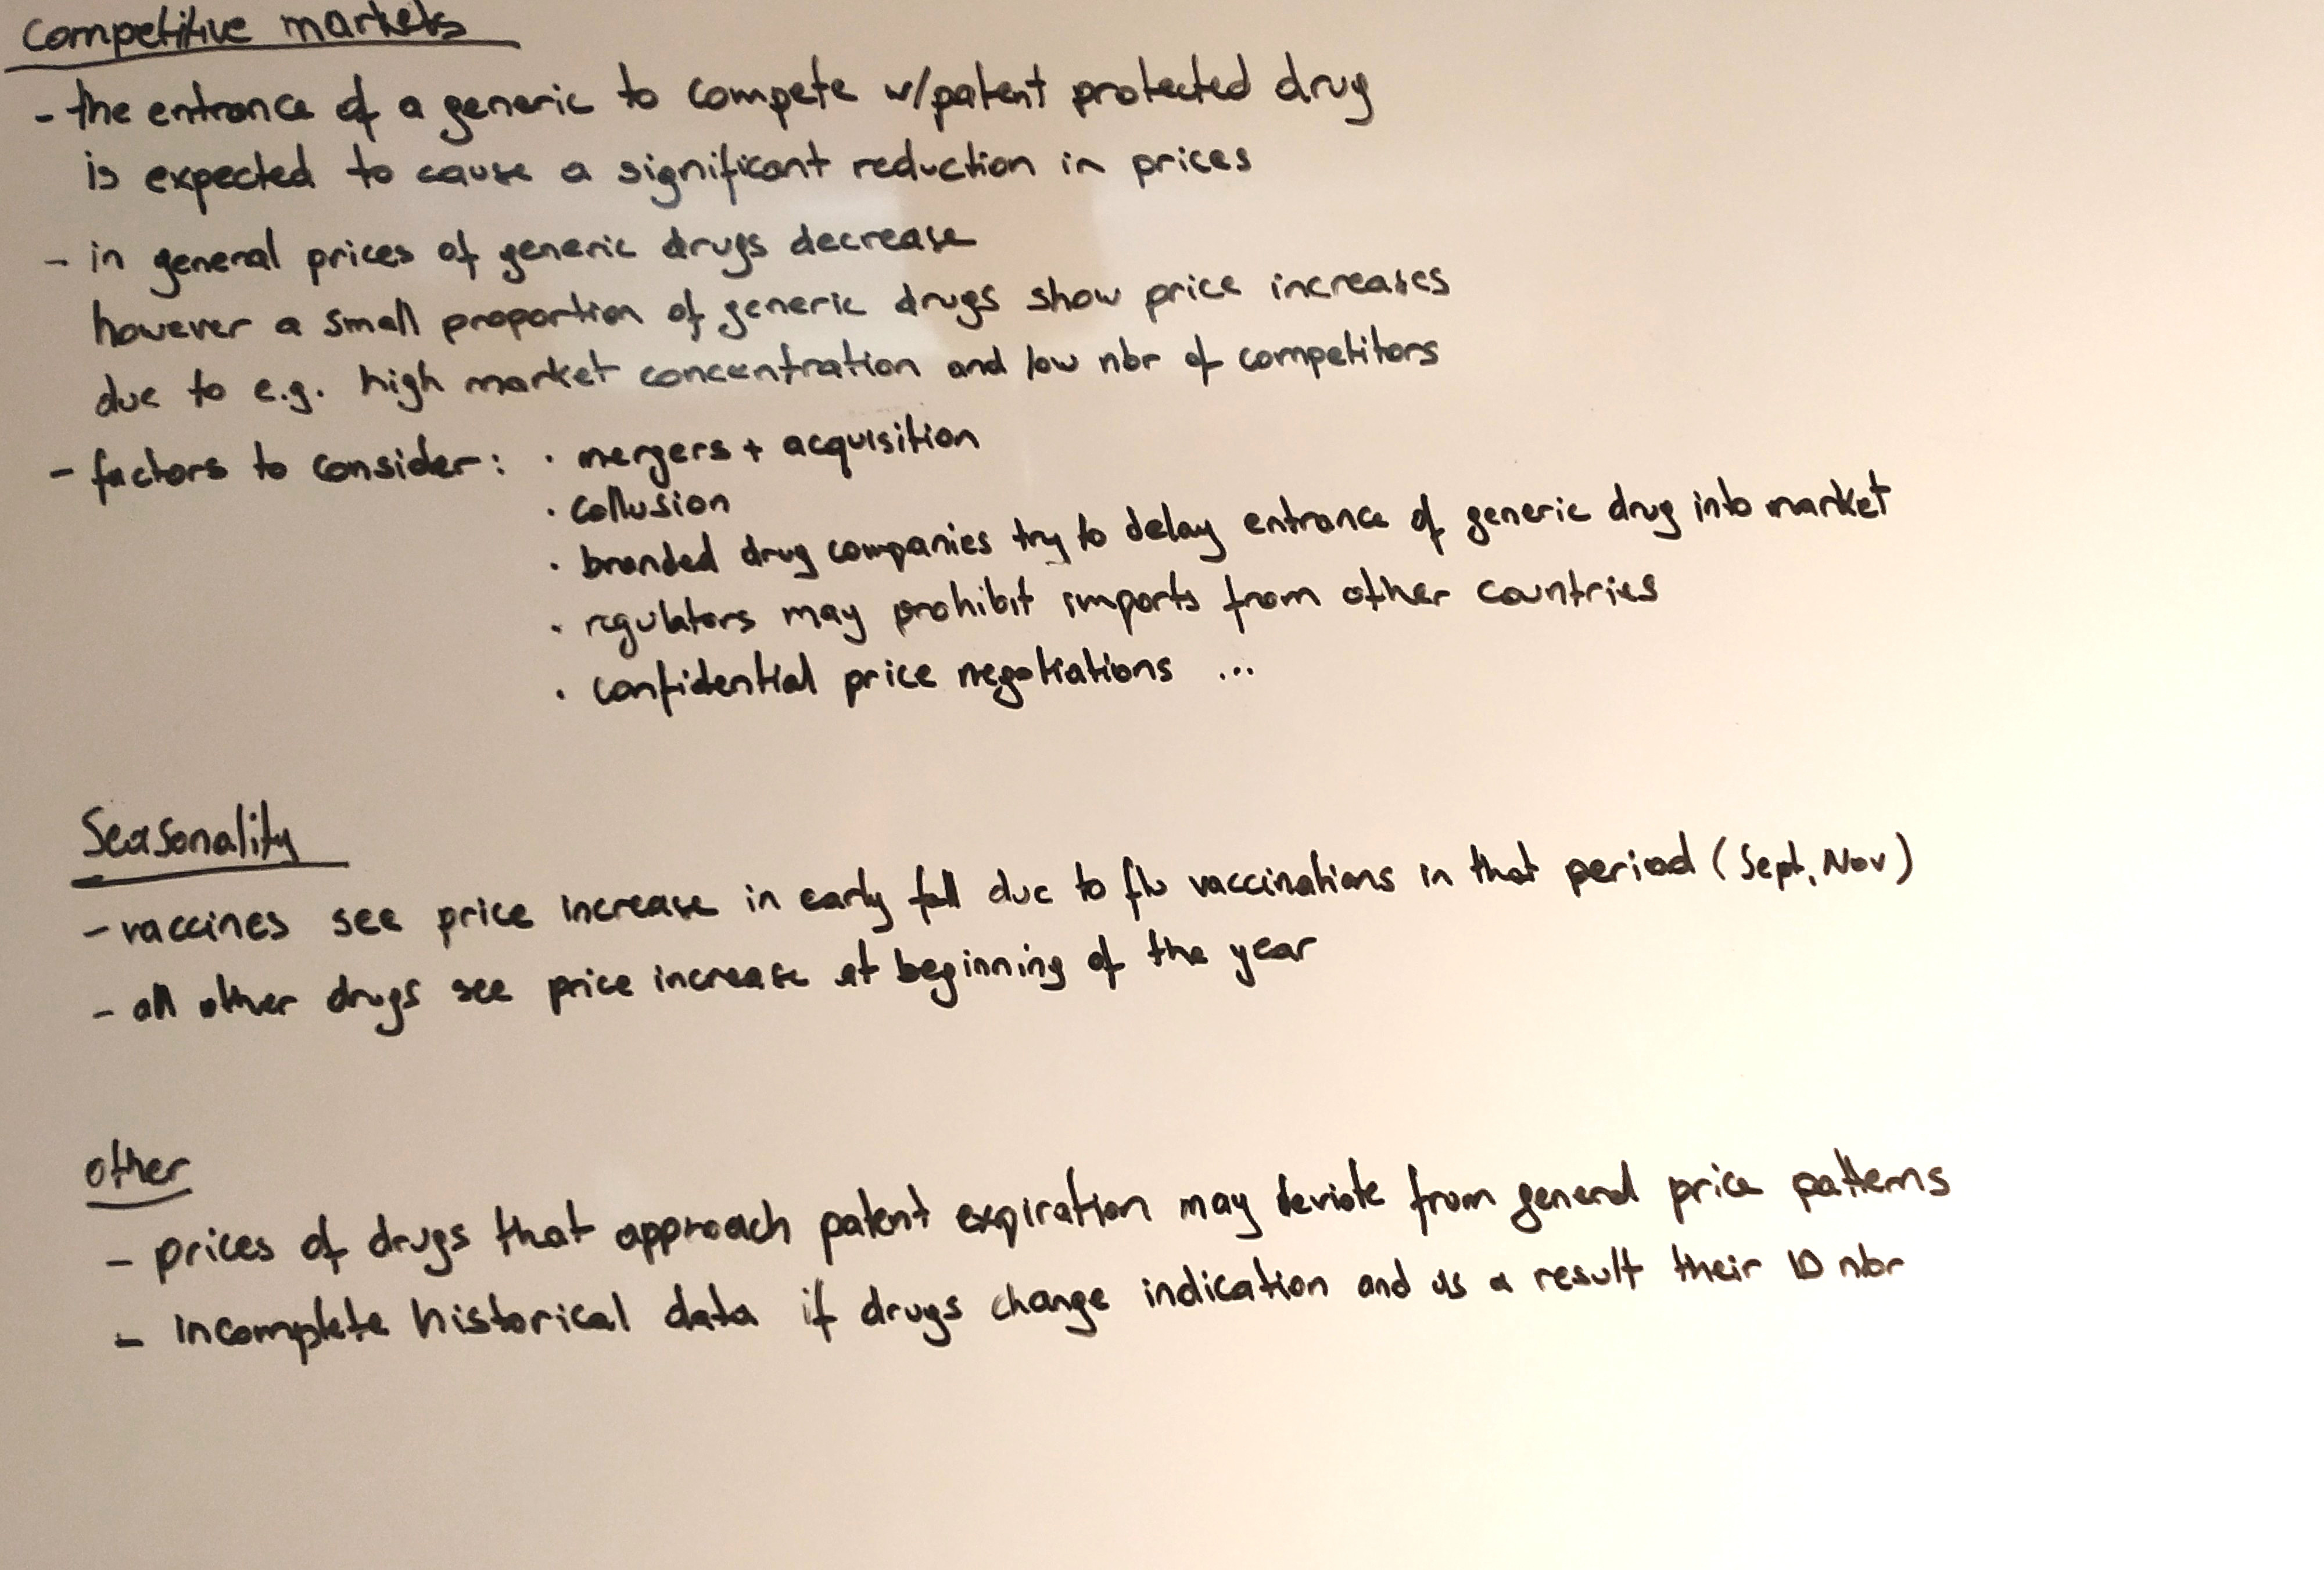 Competitive markets
- the entrance of a generic to compete w/patent protected drug
is expected to cause a significant reduction in prices
- in general prices of generic drugs decrease
however a small proportion of generic drugs show price increases
due to e.g. high market concentration and low nbr of competitors
- factors to consider: · mergers + acquisition
· collusion
· branded drug companies try to delay entrance of generic drug into market
· regulators may prohibit imports from other countries
· confidential price negotiations ...
Seasonality
- vaccines see price increase in early fall due to flu vaccinations in that period (Sept, Nov)
- all other drugs see price increase at beginning of the year
other
- prices of drugs that approach patent expiration may deviate from general price patterns
- incomplete historical data if drugs change indication and as a result their ID nbr